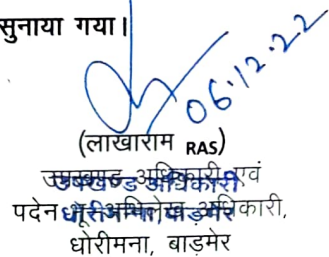 सुनाया गया।
06.12.22
(लाखाराम RAS)
उपखण्ड अधिकारी एवं
उपखण्ड अधिकारी
पदेन भू-अभिलेख अधिकारी,
धोरीमना, बाड़मेर
धोरीमना, बाड़मेर